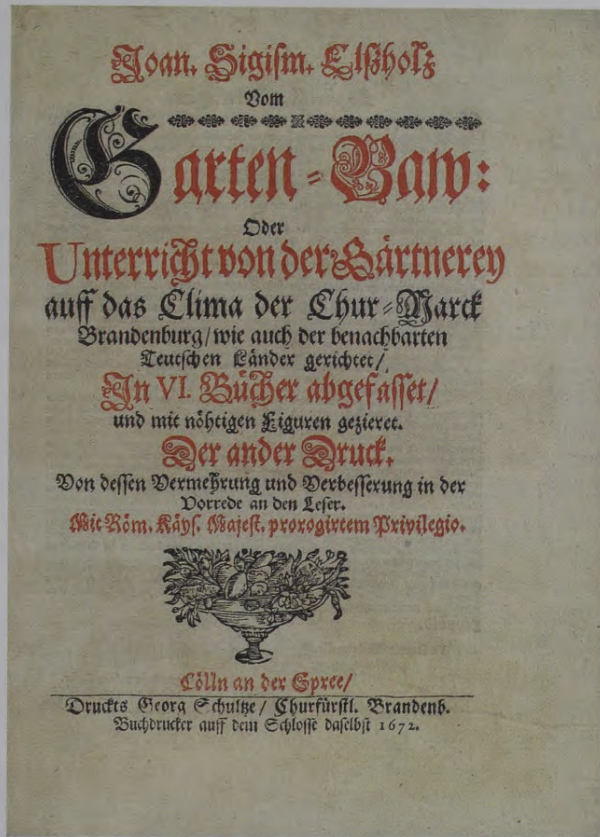 Joan. Sigism. Elßholz
Vom
Garten-Baw:
Oder
Unterricht von der Gärtnerey
auff das Clima der Chur-Marck
Brandenburg/ wie auch der benachbarten
Teutschen Länder gerichtet/
In VI. Bücher abgefasset/
und mit nöhtigen Figuren gezieret.
Der ander Druck.
Von dessen Vermehrung und Verbesserung in der
Vorrede an den Leser.
Mit Röm. Käys. Majest. prorogirtem Privilegio.
Cölln an der Spree/
Druckts Georg Schultze/ Churfürstl. Brandenb.
Buchdrucker auff dem Schlosse daselbst 1672.